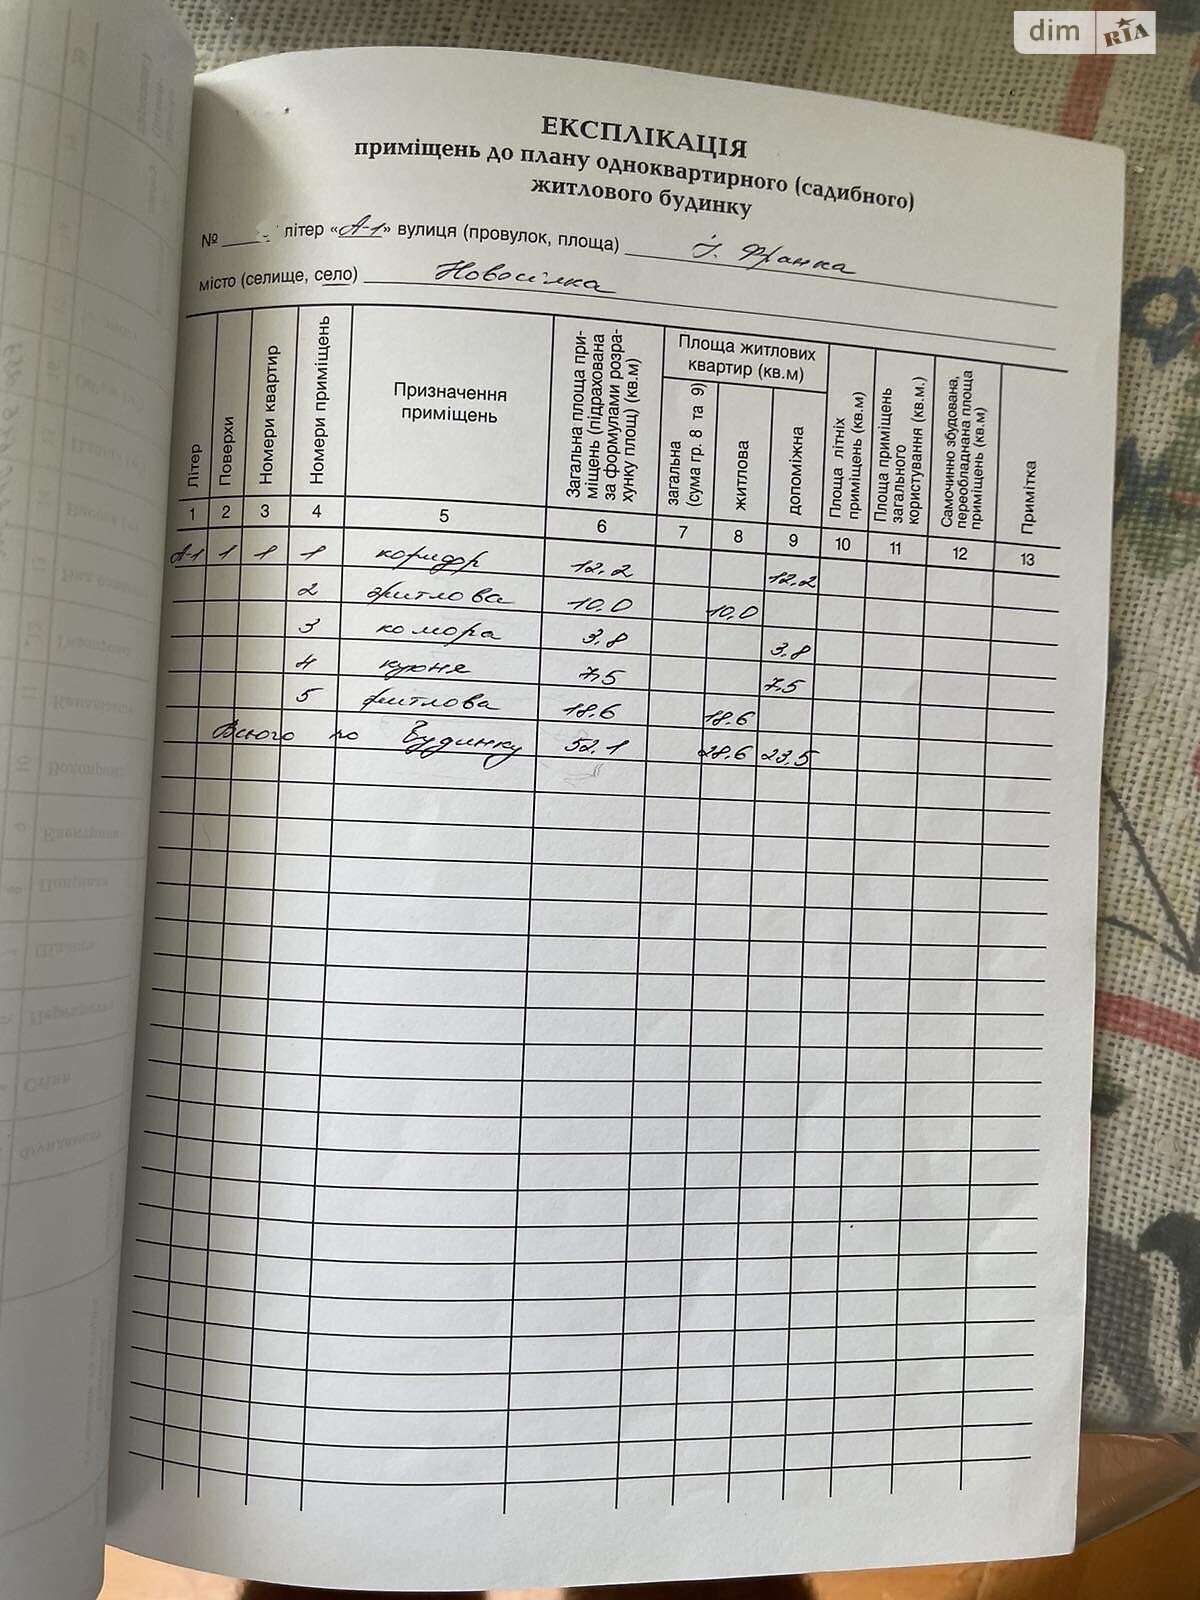 dim RIA
ЕКСПЛІКАЦІЯ
приміщень до плану одноквартирного (садибного)
житлового будинку
№ літер «А-1» вулиця (провулок, площа) І. Франка
місто (селище, село) Новосілка
Літер Поверхи Номери квартир Номери приміщень Призначення приміщень Загальна площа приміщень (підрахована за формулами розрахунку площ) (кв.м) Площа житлових квартир (кв.м) загальна (сума гр. 8 та 9) житлова допоміжна Площа літніх приміщень (кв.м) Площа приміщень загального користування (кв.м.) Самочинно збудована, переобладнана площа приміщень (кв.м) Примітка
1 2 3 4 5 6 7 8 9 10 11 12 13
А-1 1 1 1 коридор 12.2 12.2
2 житлова 10,0 10,0
3 комора 3.8 3.8
4 кухня 7,5 7,5
5 житлова 18.6 18.6
Всього по будинку 52.1 28.6 23,5